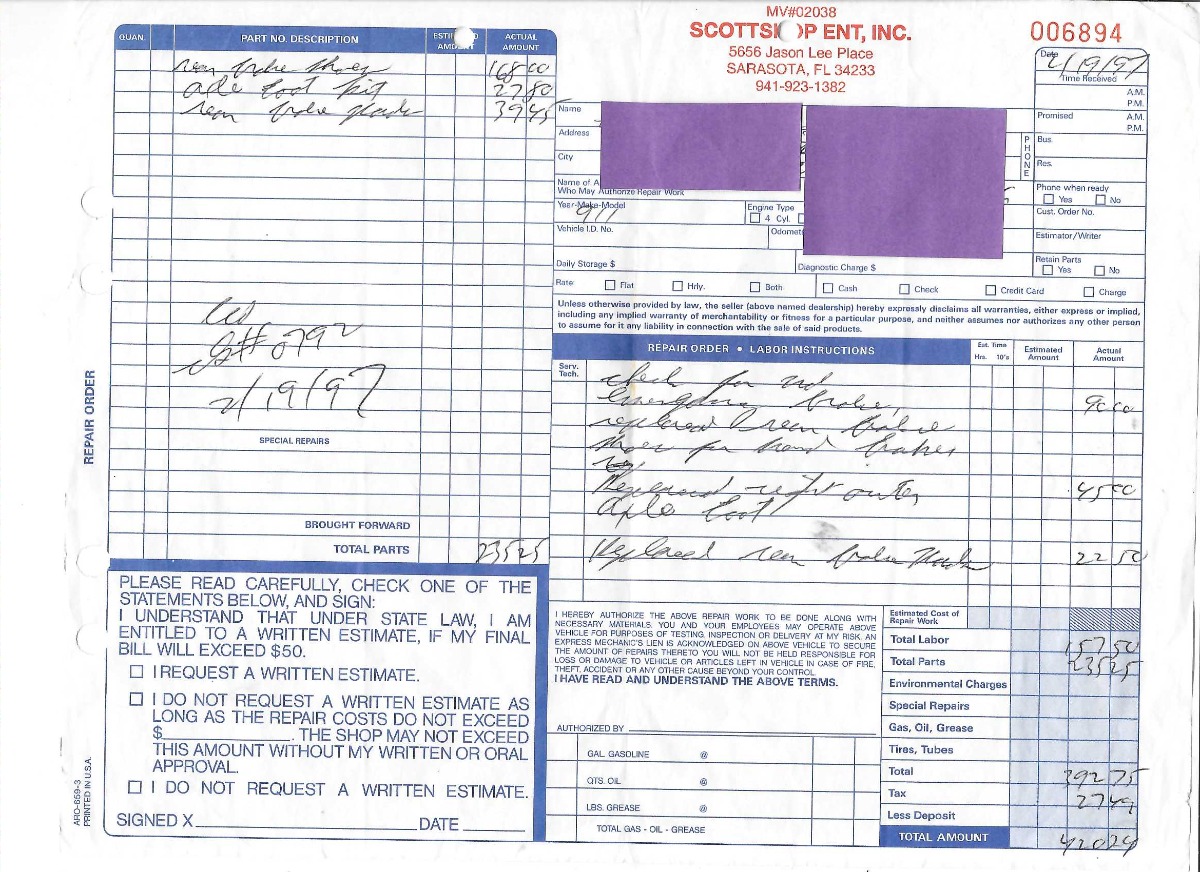 MV#02038
SCOTTSHOP ENT, INC.
5656 Jason Lee Place
SARASOTA, FL 34233
941-923-1382
006894
Date
2/19/97
Time Received
A.M.
P.M.
Promised
A.M.
P.M.
PHONE
Bus.
Res.
Phone when ready
Yes No
Cust. Order No.
Estimator/Writer
Retain Parts
Yes No
QUAN. PART NO. DESCRIPTION ESTIMATED AMOUNT ACTUAL AMOUNT
rear brake shoes 168 00
axle boot kit 27 80
rear brake pads 39 45
# 0792
2/19/97
SPECIAL REPAIRS
BROUGHT FORWARD
TOTAL PARTS 235 25
Name
Address
City
Name of A
Who May Authorize Repair Work
Year-Make-Model
911
Engine Type
4 Cyl.
Vehicle I.D. No.
Odomet
Daily Storage $
Diagnostic Charge $
Rate: Flat Hrly. Both Cash Check Credit Card Charge
Unless otherwise provided by law, the seller (above named dealership) hereby expressly disclaims all warranties, either express or implied,
including any implied warranty of merchantability or fitness for a particular purpose, and neither assumes nor authorizes any other person
to assume for it any liability in connection with the sale of said products.
REPAIR ORDER • LABOR INSTRUCTIONS
Est. Time
Hrs. 10's
Estimated Amount
Actual Amount
Serv. Tech.
check for
Emergency brake, 90 00
replaced rear brake
shoes for hand brakes
Replaced right outer 45 00
axle boot
Replaced rear brake pads 22 50
REPAIR ORDER
ARO-659-3
PRINTED IN U.S.A.
PLEASE READ CAREFULLY, CHECK ONE OF THE
STATEMENTS BELOW, AND SIGN:
I UNDERSTAND THAT UNDER STATE LAW, I AM
ENTITLED TO A WRITTEN ESTIMATE, IF MY FINAL
BILL WILL EXCEED $50.
I REQUEST A WRITTEN ESTIMATE.
I DO NOT REQUEST A WRITTEN ESTIMATE AS
LONG AS THE REPAIR COSTS DO NOT EXCEED
$____________. THE SHOP MAY NOT EXCEED
THIS AMOUNT WITHOUT MY WRITTEN OR ORAL
APPROVAL.
I DO NOT REQUEST A WRITTEN ESTIMATE.
SIGNED X____________ DATE ______
I HEREBY AUTHORIZE THE ABOVE REPAIR WORK TO BE DONE ALONG WITH
NECESSARY MATERIALS. YOU AND YOUR EMPLOYEES MAY OPERATE ABOVE
VEHICLE FOR PURPOSES OF TESTING, INSPECTION OR DELIVERY AT MY RISK. AN
EXPRESS MECHANIC'S LIEN IS ACKNOWLEDGED ON ABOVE VEHICLE TO SECURE
THE AMOUNT OF REPAIRS THERETO. YOU WILL NOT BE HELD RESPONSIBLE FOR
LOSS OR DAMAGE TO VEHICLE OR ARTICLES LEFT IN VEHICLE IN CASE OF FIRE,
THEFT, ACCIDENT OR ANY OTHER CAUSE BEYOND YOUR CONTROL.
I HAVE READ AND UNDERSTAND THE ABOVE TERMS.
AUTHORIZED BY
GAL. GASOLINE @
QTS. OIL @
LBS. GREASE @
TOTAL GAS - OIL - GREASE
Estimated Cost of Repair Work
Total Labor 157 50
Total Parts 235 25
Environmental Charges
Special Repairs
Gas, Oil, Grease
Tires, Tubes
Total 392 75
Tax 27 49
Less Deposit
TOTAL AMOUNT 420 24